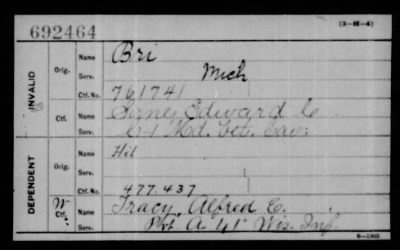 692464
(3-H-4)
INVALID
Orig.
Name Bri
Serv. Mich
Ctf. No. 761741
Ctf.
Name Edward C
Serv. C-1 Md. Cav.
DEPENDENT
Orig.
Name Hil
Serv.
Ctf. No. 477.437
W
Ctf.
Name Tracy, Alfred C.
Serv. Pvt. A 41" Wis. Inf.